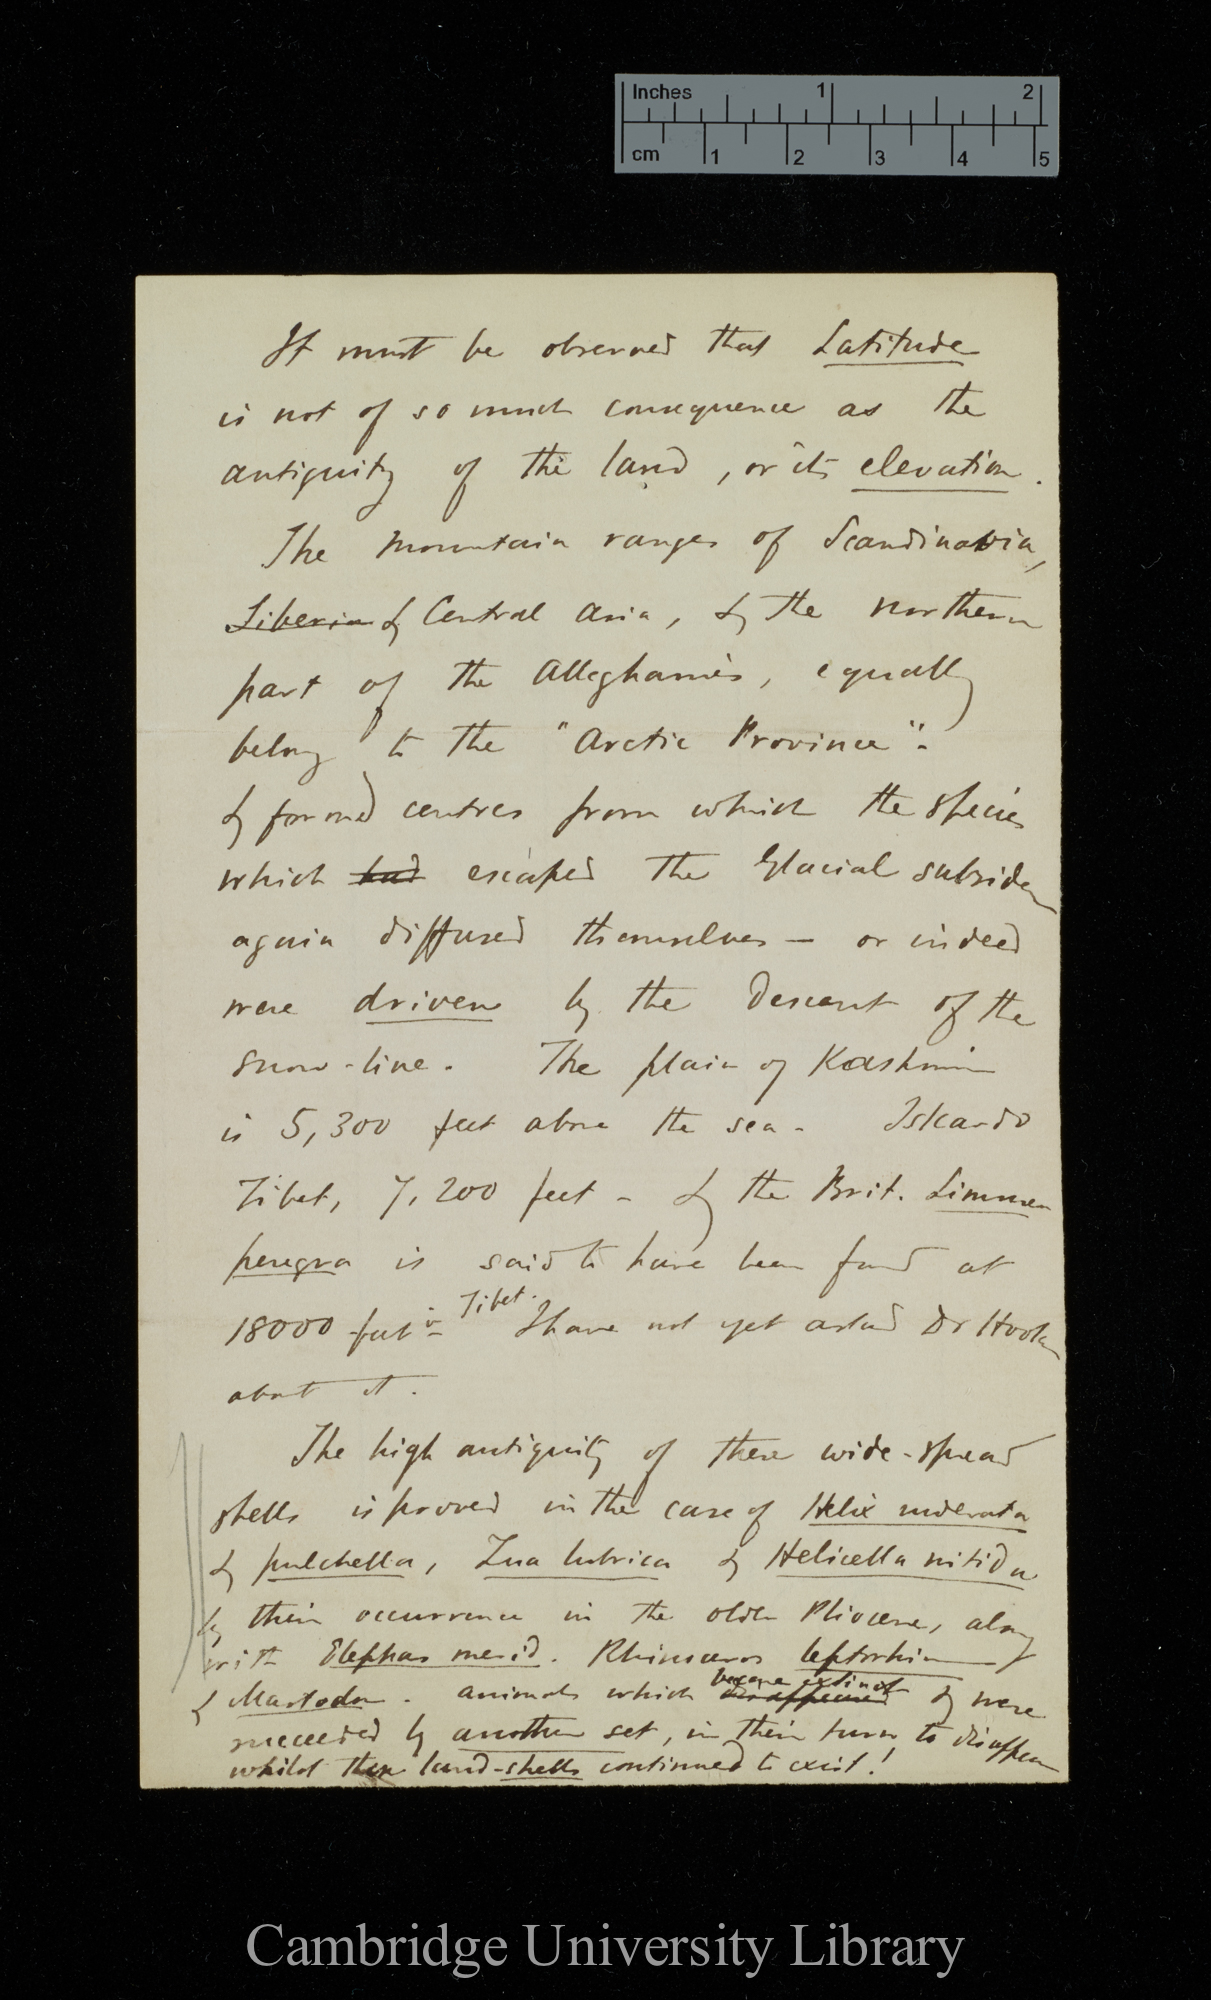 Inches 1 2
cm 1 2 3 4 5
It must be observed that Latitude
is not of so much consequence as the
antiquity of the land, or its elevation.
The mountain ranges of Scandinavia,
Siberia & Central Asia, & the northern
part of the Alleghanies, equally
belong to the "Arctic Province".
& formed centres from which the species
which had escaped the Glacial subsidence
again diffused themselves — or indeed
were driven by the descent of the
snow-line. The plain of Kashmir
is 5,300 feet above the sea. Iskardo
Tibet, 7,200 feet - & the Brit. Limnaea
peregra is said to have been found at
18000 feet in Tibet. I have not yet asked Dr Hooker
about it.
The high antiquity of these wide-spread
shells is proved in the case of Helix ruderata
& pulchella, Zua lubrica & Helicella nitida
by their occurrence in the older Pliocene, along
with Elephas merid. Rhinoceros leptorhinus
& Mastodon. animals which disappeared became extinct & were
succeeded by another set, in their turn to disappear
whilst these land-shells continued to exist!
Cambridge University Library